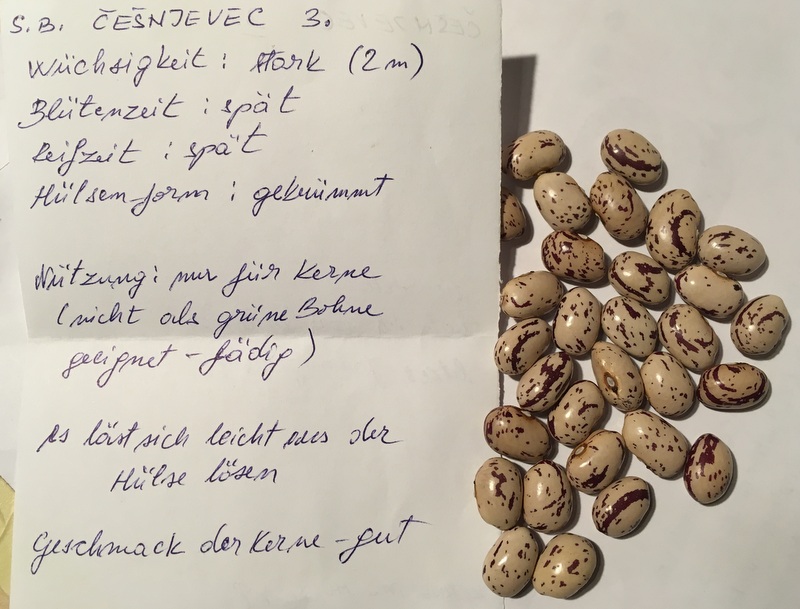 S.B. ČEŠNJEVEC 3.
Wüchsigkeit: stark (2m)
Blütenzeit: spät
Reifzeit: spät
Hülsem-form: gekrümmt
Nützung: nur für Kerne
(nicht als grüne Bohne
geeignet - fädig)
es löst sich leicht aus der
Hülse lösen
Geschmack der Kerne - gut